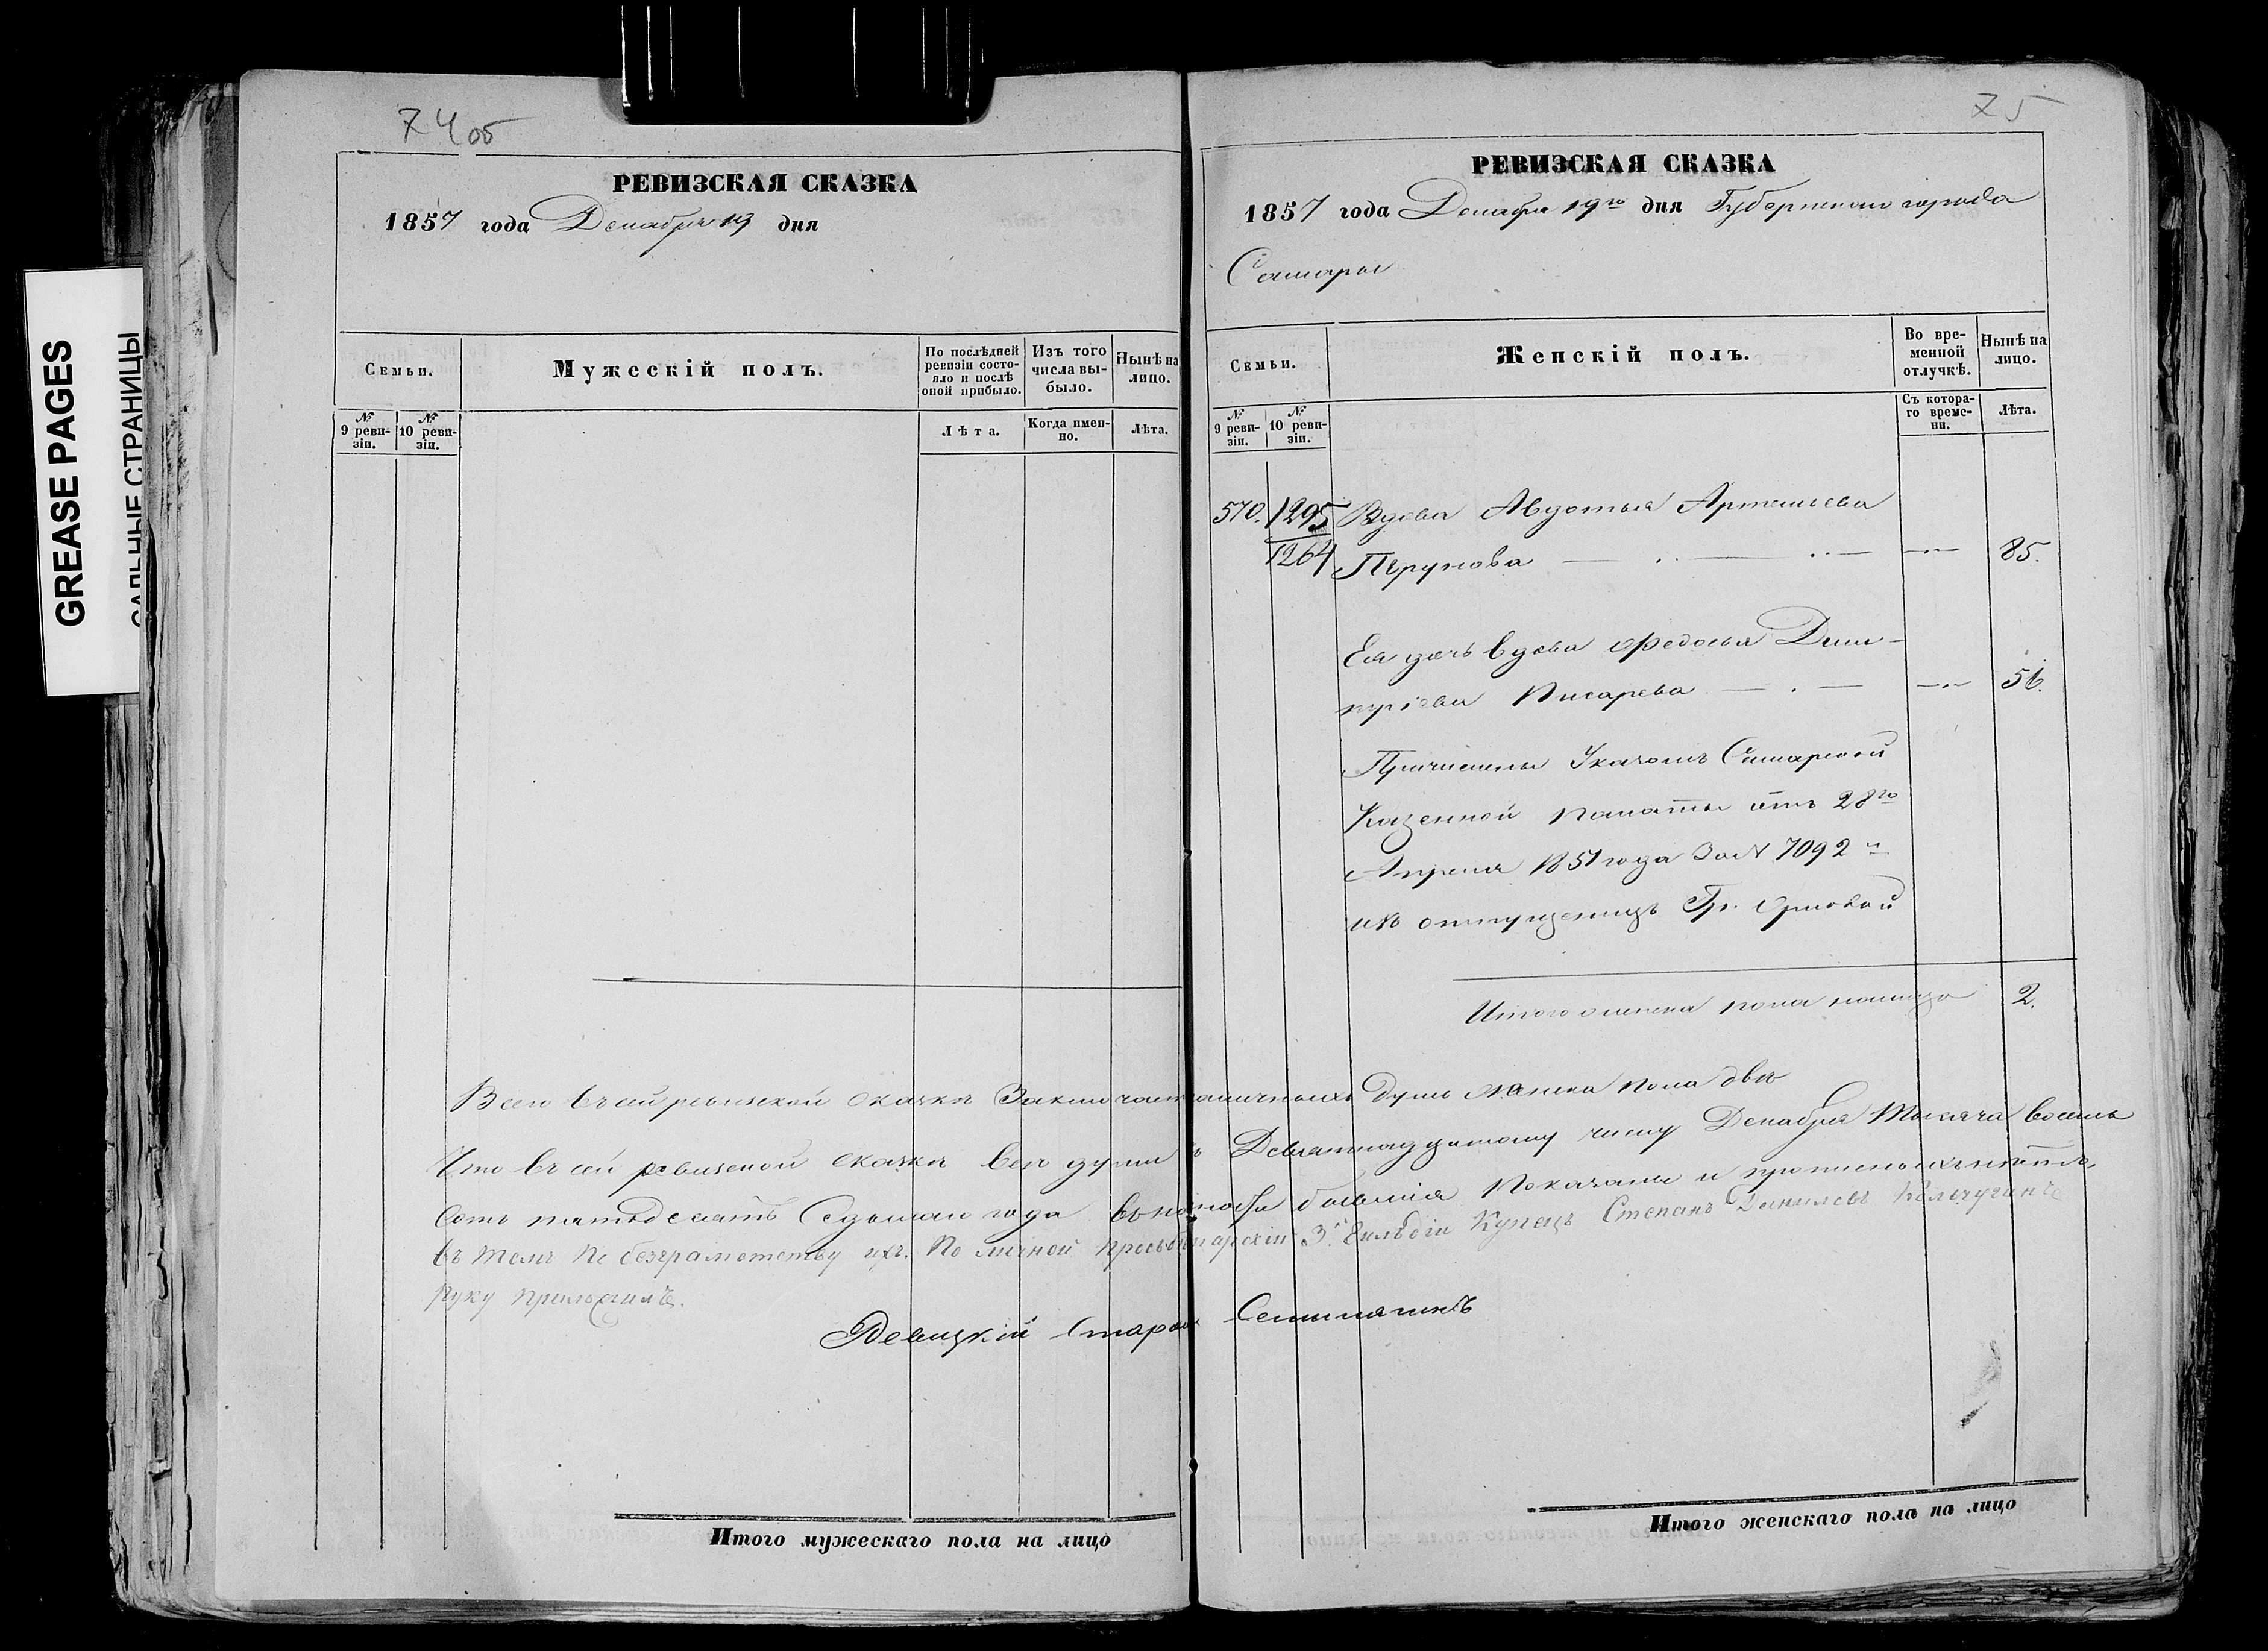 GREASE PAGES
САЛЬНЫЕ СТРАНИЦЫ
74 об
РЕВИЗСКАЯ СКАЗКА
1857 года Декабря 19 дня
Семьи.
Мужескій полъ.
По послѣдней ревизіи состояло и послѣ оной прибыло.
Изъ того числа выбыло.
Нынѣ на лицо.
№ 9 ревизіи.
№ 10 ревизіи.
Лѣта.
Когда именно.
Лѣта.
75
РЕВИЗСКАЯ СКАЗКА
1857 года Декабря 19го дня Губернскаго города
Самары
Семьи.
Женскій полъ.
Во временной отлучкѣ.
Нынѣ на лицо.
№ 9 ревизіи.
№ 10 ревизіи.
Съ котораго времени.
Лѣта.
570. 1295 Вдова Авдотья Артемьева
1264 Перунова 85.
Ея дочь вдова Федосья Дми-
тріева Писарева 56.
Причислены Указомъ Самарской
Казенной палаты отъ 28го
Апреля 1851 года за № 7092
изъ отпущеницъ Гр. Орловой
Итого женска пола налицо 2.
Всего въ сей ревизской сказкѣ Заключает наличныхъ душъ женска пола двѣ
Что въ сей ревизской сказкѣ всѣ души къ Девятнадцатому числу Декабря тысяча восемь
сотъ пятьдесятъ Седьмаго года бывшія Показаны и прописныхъ нѣтъ,
въ томъ по безграмотству ихъ. По личной прозбѣ 3й Гильдіи Купецъ Степанъ Даниловъ
руку приложилъ.
Староста
Итого мужескаго пола на лицо
Итого женскаго пола на лицо